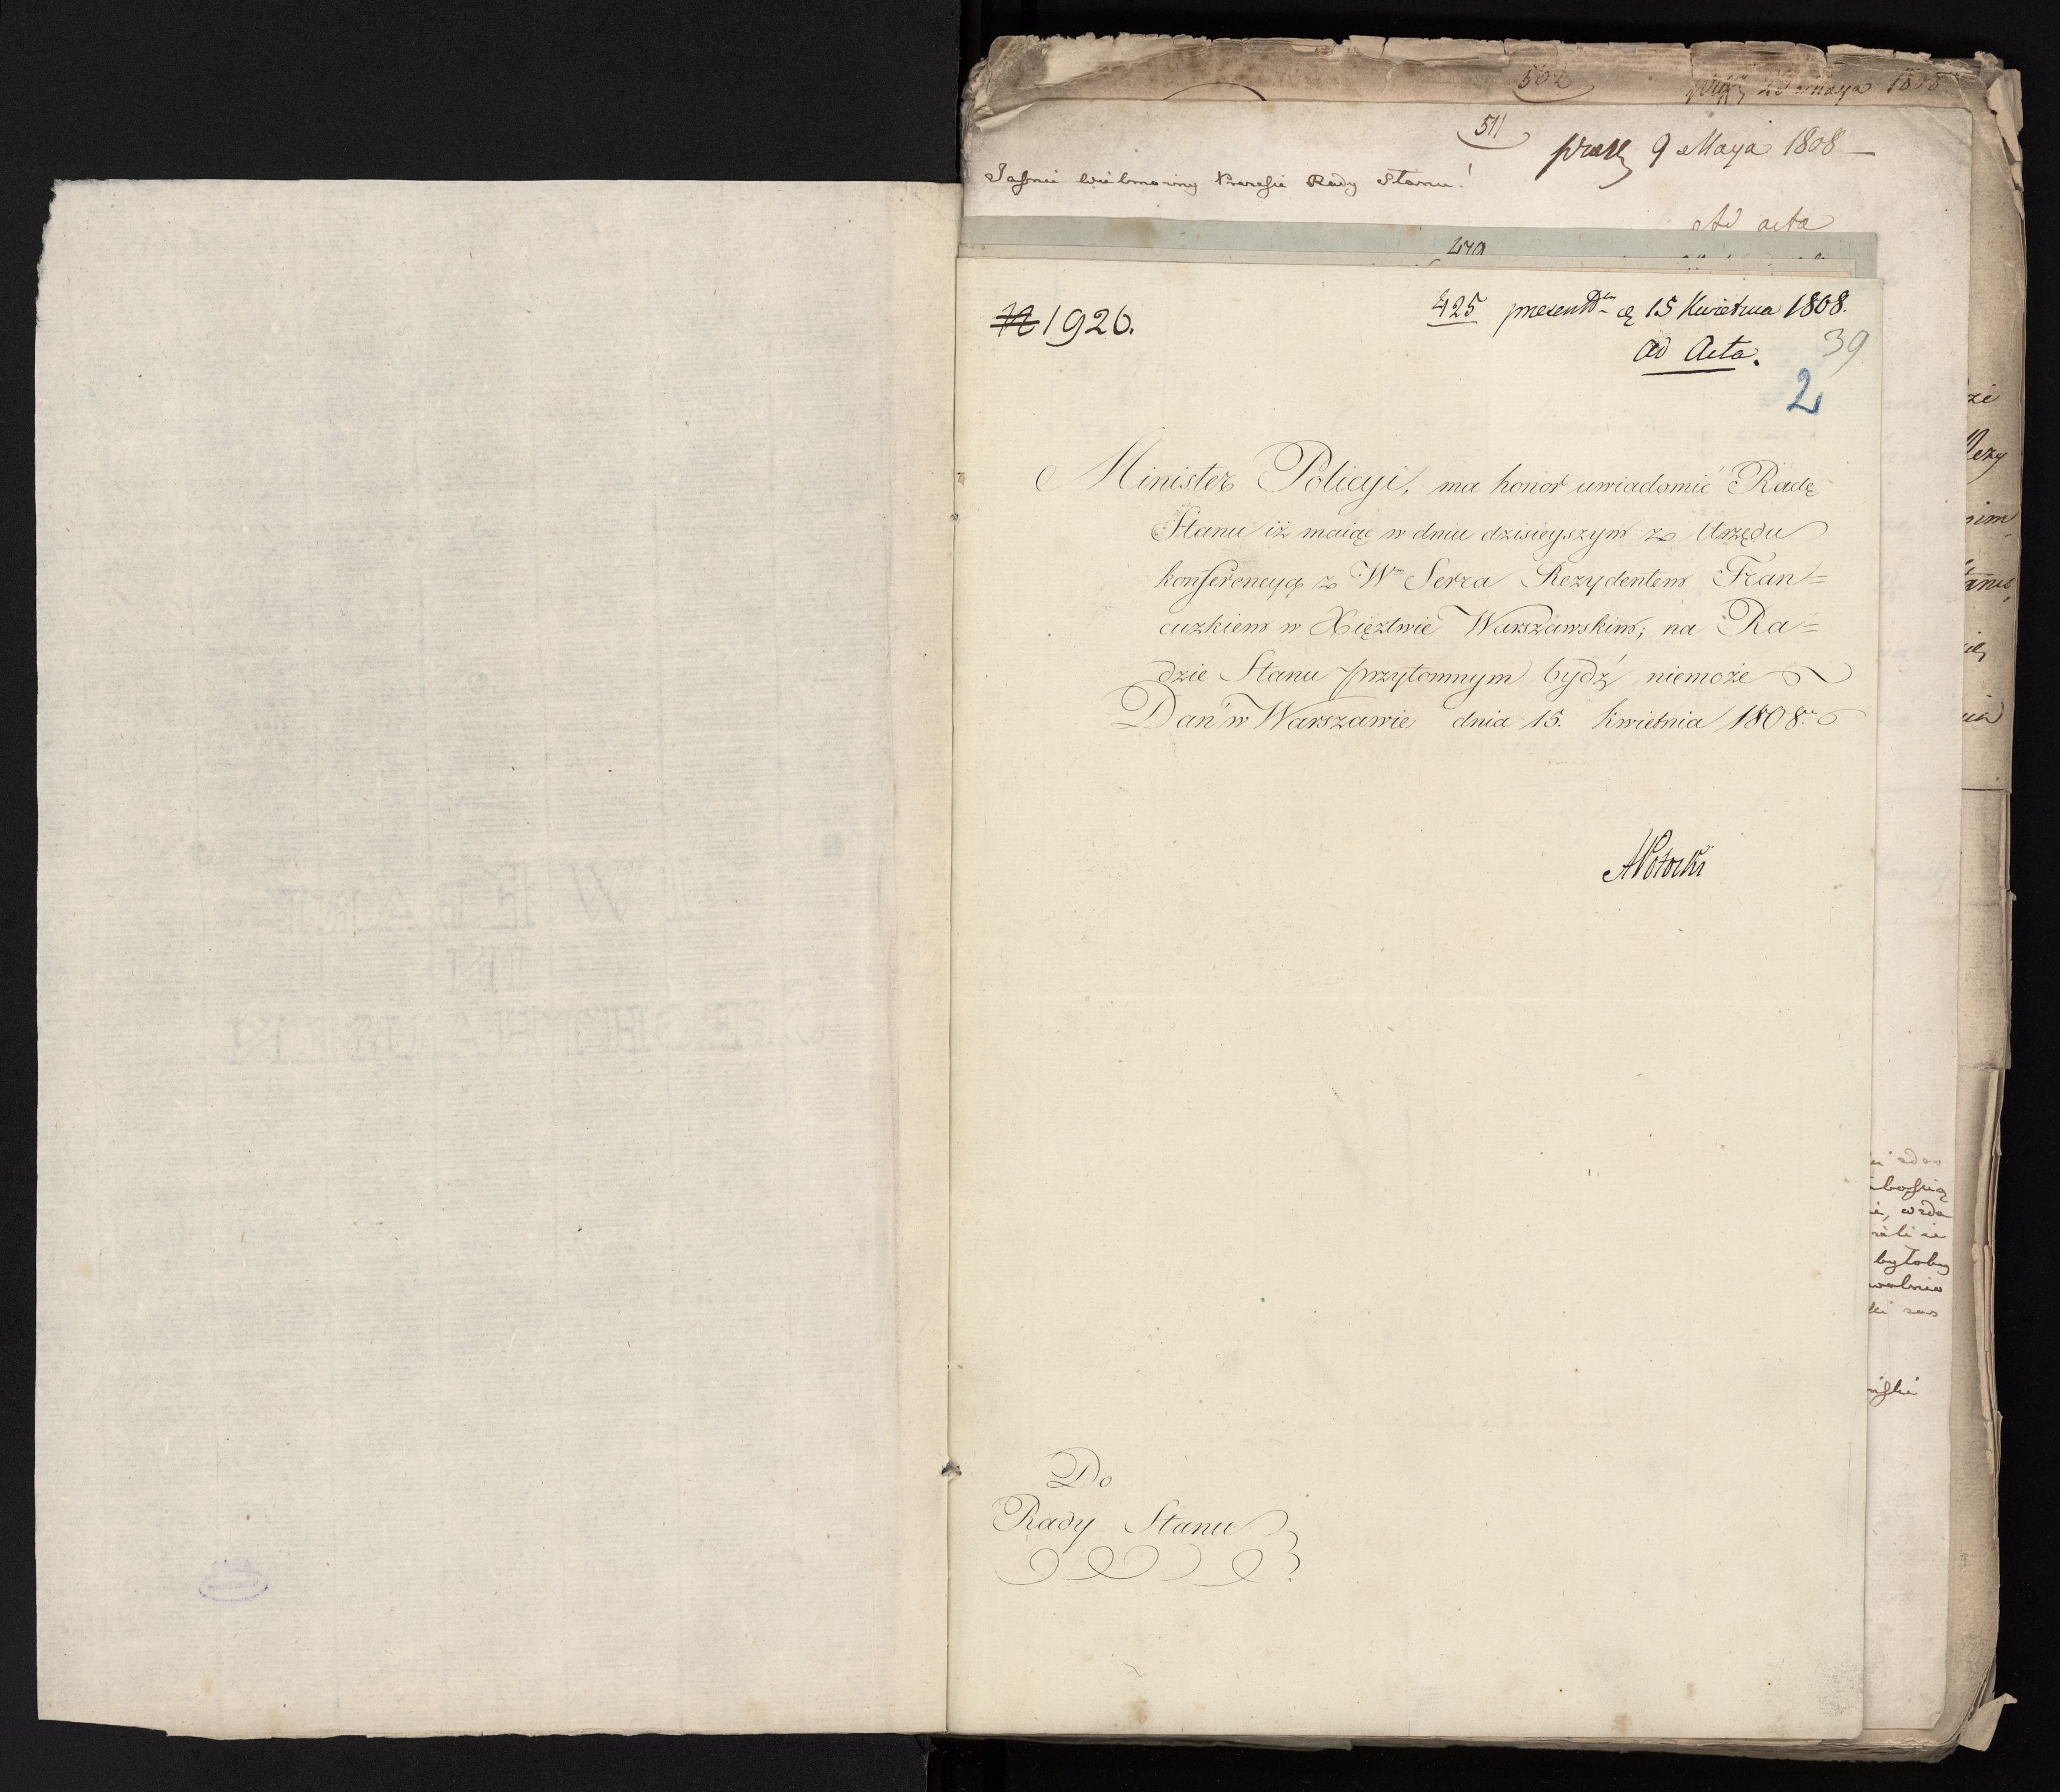 502
28 Maya 1808
511
9 Maya 1808 —
Jaśnie Wielmożny Prezesie Rady Stanu!
Ad acta
N 1926.
425 present 15 Kwietnia 1808.
ad Acta.
39
2
Minister Policyi, ma honor uwiadomić Radę
Stanu iż maiąc w dniu dzisieyszym z Urzędu
konferencyą z W Serra Rezydentem Fran=
cuzkiem w Xięztwie Warszawskim; na Ra=
dzie Stanu przytomnym bydź niemoże
Dań w Warszawie dnia 15. Kwietnia 1808.
APotocki
Do
Rady Stanu
J W EBART
IN
SPECHTHAUSEN
byłoby